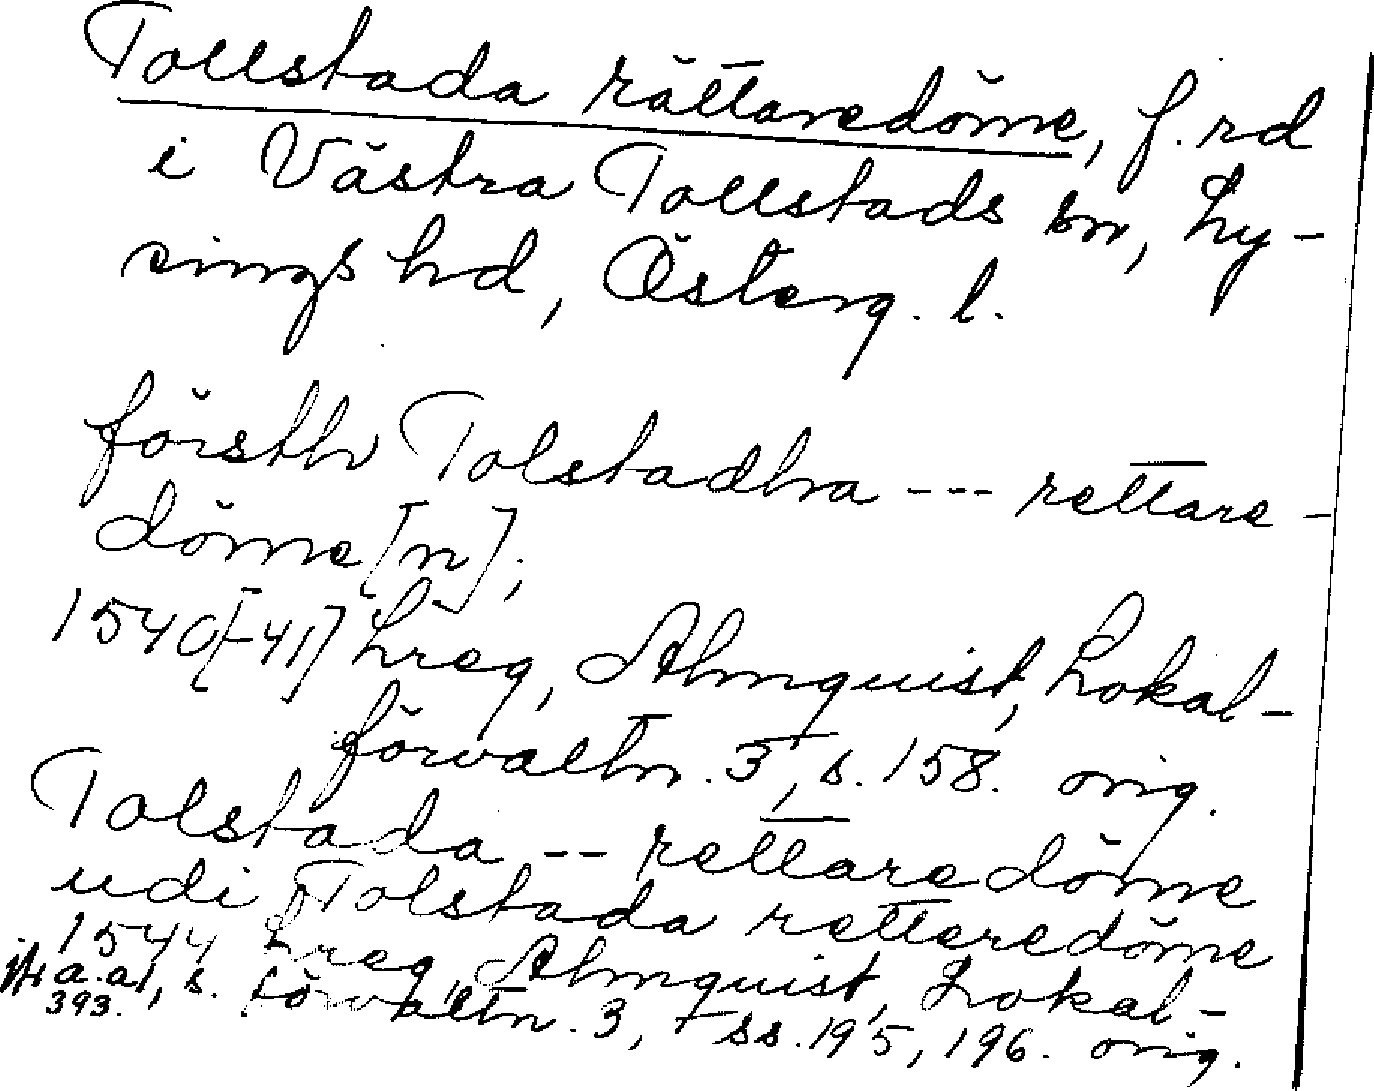 Tollstada rättaredöme, f. rd
i Västra Tollstads sn, Ly-
sings hd, Österg. l.
försth Tolstadha --- rettare-
döme[n];
1540[-41] Lreg, Almquist, Lokal-
förvaltn. 3, s. 158. orig.
Tolstada -- rettaredöme
udi Tolstada retteredöme
1544 Lreg, Almquist, Lokal-
förvaltn. 3, ss. 195, 196. orig.
jfr a.a., s.
393.